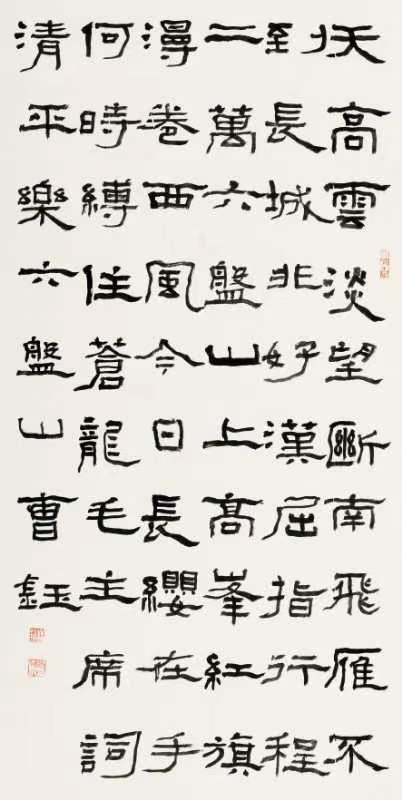 天高雲淡望斷南飛雁不
到長城非好漢屈指行程
二萬六盤山上高峯紅旗
漫卷西風今日長纓在手
何時縛住蒼龍毛主席詞
清平樂六盤山曹鈺